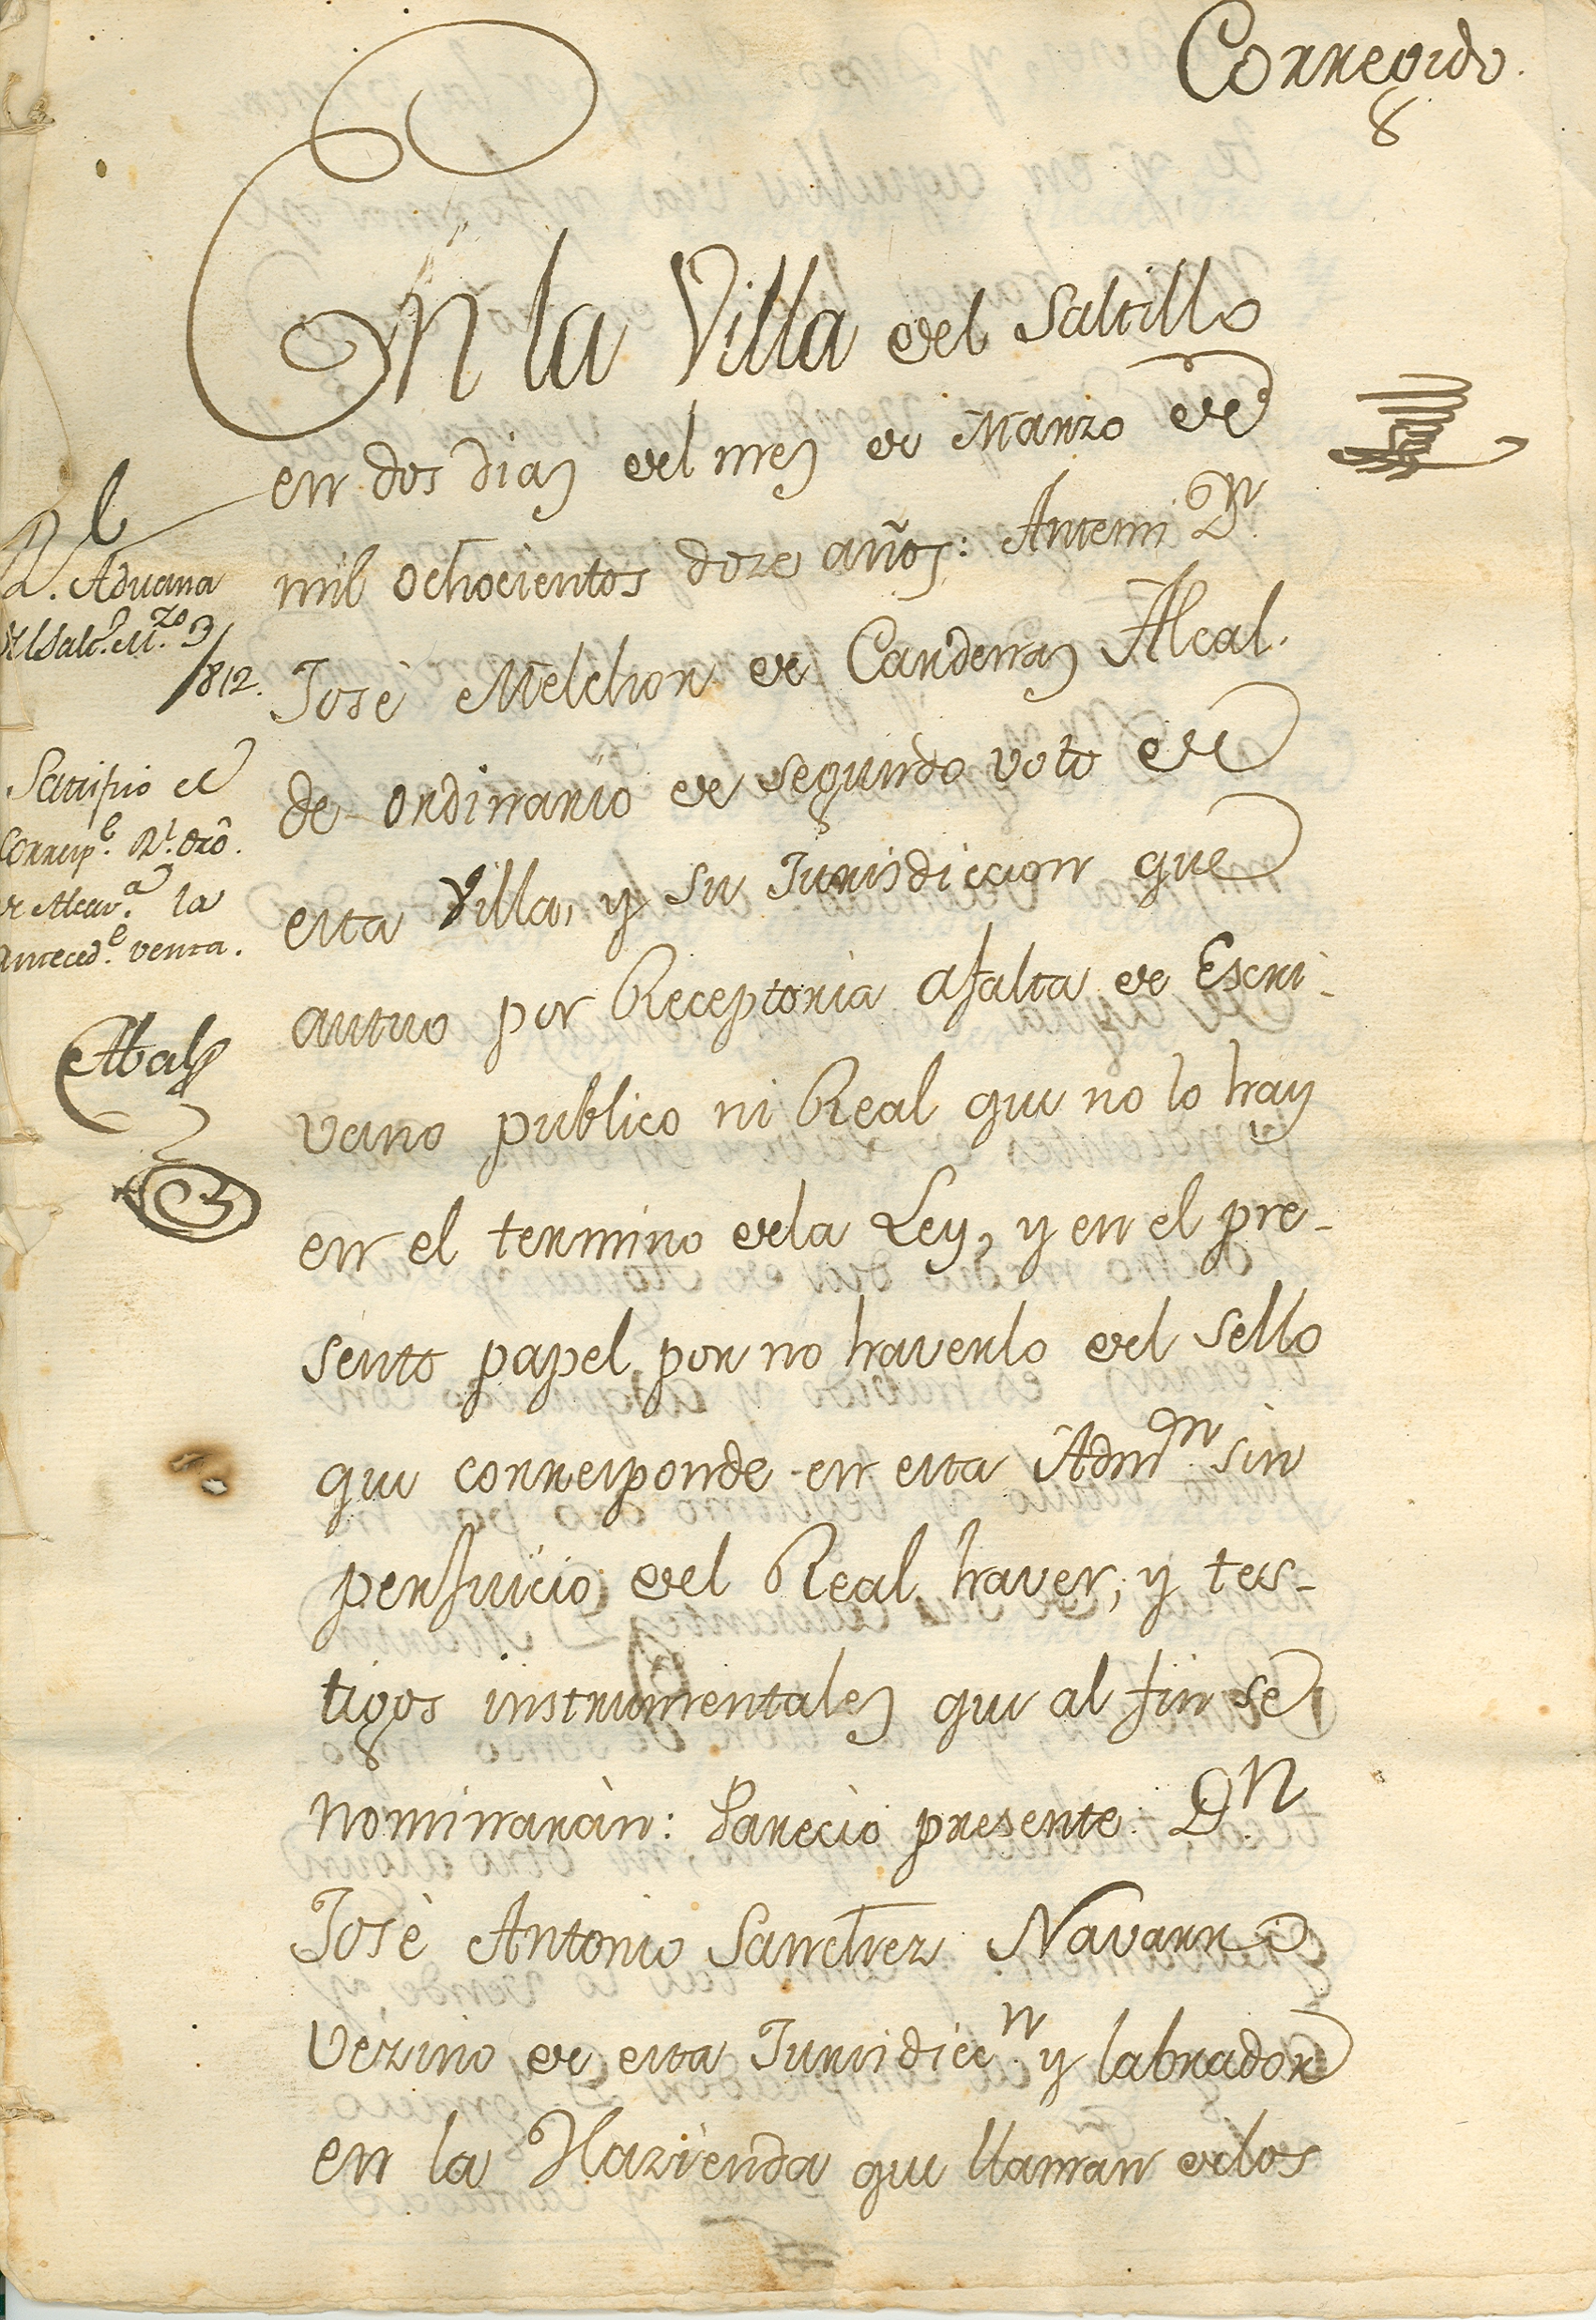 Corregido.
En la Villa del Saltillo
en dos dias del mes de Marzo de
mil ochocientos doze años: Antemi Dn.
José Melchor de Cardenas Alcal.
de ordinario de segundo voto de
esta Villa, y su Jurisdiccion que
actuo por Receptoria afalta de Escri-
vano publico ni Real que no lo hay
en el termino dela Ley, y en el pre-
sente papel por no haverlo del sello
que corresponde en esta Admn. sin
perjuicio del Real haver, y tes-
tigos instrumentales que al fin se
nominaràn: Parecio presente Dn.
Josè Antonio Sanchez Navarro
vezino de esta Jurisdiccn. y labrador
en la Hazienda que llaman delos
Rl. Aduana
del Salto. Mzo. 3/
812.
Satisfio el
Corresp.e Rl. dro.
de Alcav.a la
anteced.e venta.